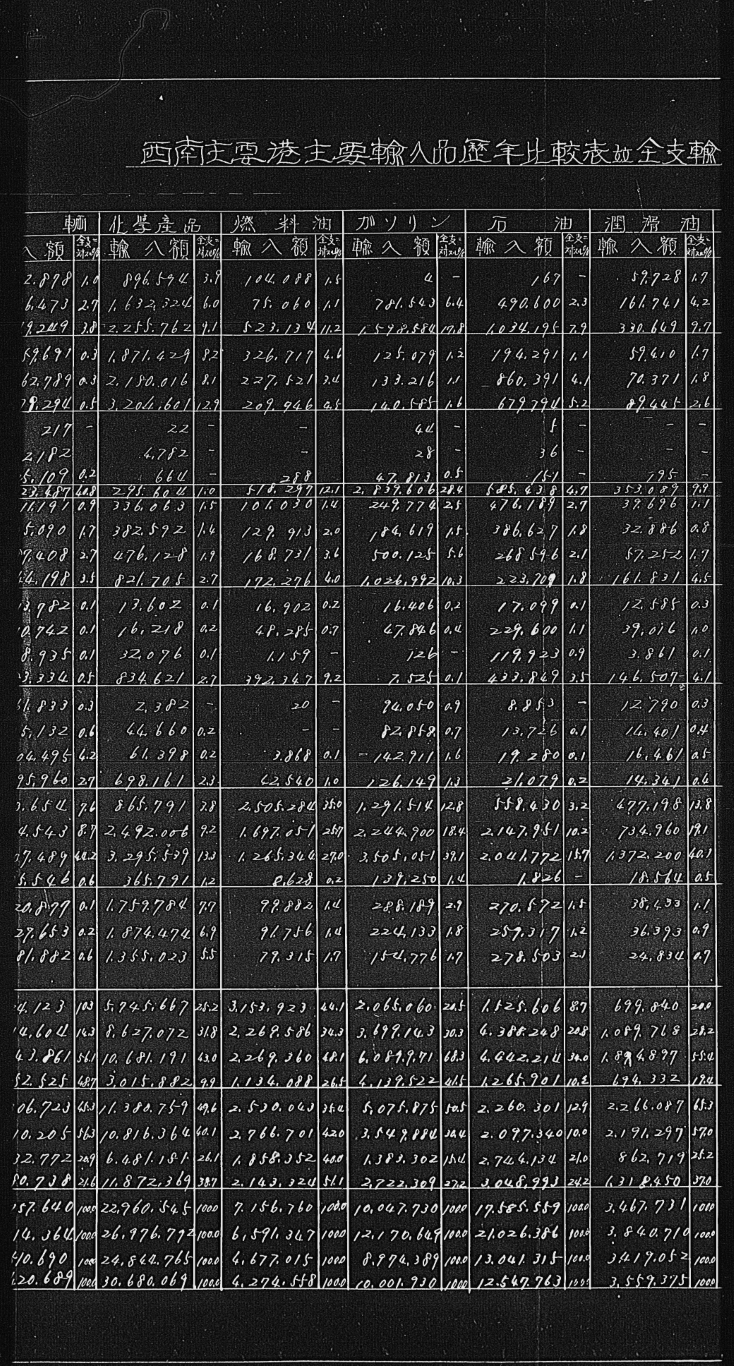 西南主要港主要輸入品歷年比較表並全支輸
輛 化學產品 燃料油 ガソリン 石油 潤滑油
入額 輸入額 輸入額 輸入額 輸入額 輸入額
2.878 1.0 896.594 3.9 104.088 1.5 4 - 167 - 59.728 1.7
6.473 2.7 1.632.324 6.0 75.060 1.1 781.543 6.4 490.600 2.3 161.741 4.2
9.249 3.8 2.255.762 9.1 523.134 11.2 1.598.584 17.8 1.034.195 7.9 330.649 9.7
59.691 0.3 1.871.429 8.2 326.717 4.6 125.079 1.2 194.291 1.1 59.410 1.7
62.789 0.3 2.180.016 8.1 227.521 3.4 133.216 1.1 860.391 4.1 70.371 1.8
79.294 0.5 3.204.601 12.9 209.946 4.5 140.585 1.6 679.794 5.2 89.445 2.6
217 - 22 - - 44 - 5 - - -
2182 4.782 - - 28 - 36 - - -
5.109 0.2 664 - 288 47.813 0.5 151 - 195 -
23.487 40.8 295.604 1.0 518.297 12.1 2.839.606 28.4 585.438 4.7 353.089 9.9
11.191 0.9 336.063 1.5 101.030 1.4 249.774 2.5 476.189 2.7 39.696 1.1
5.090 1.7 382.592 1.4 129.913 2.0 184.619 1.5 386.627 1.8 32.886 0.8
9.408 2.7 476.128 1.9 168.731 3.6 500.125 5.6 268.596 2.1 57.252 1.7
4.198 3.5 821.705 2.7 172.276 4.0 1.026.992 10.3 223.709 1.8 161.831 4.5
3.782 0.1 13.602 0.1 16.902 0.2 16.406 0.2 17.099 0.1 12.585 0.3
0.742 0.1 16.218 0.2 48.285 0.7 47.846 0.4 229.600 1.1 39.016 1.0
8.935 0.1 32.076 0.1 1.159 - 126 - 119.923 0.9 3.861 0.1
3.334 0.5 834.621 2.7 392.347 9.2 7.525 0.1 433.849 3.5 146.507 4.1
1.833 0.3 2.382 - 20 - 94.050 0.9 8.853 - 12.790 0.3
5.132 0.6 44.660 0.2 - - 82.858 0.7 13.726 0.1 14.401 0.4
04.495 4.2 61.398 0.2 3.868 0.1 142.911 1.6 19.280 0.1 16.461 0.5
95.960 2.7 698.161 2.3 42.540 1.0 126.149 1.3 21.079 0.2 14.341 0.4
3.654 7.6 865.791 3.8 2.505.284 35.0 1.291.514 12.8 558.430 3.2 477.198 13.8
4.543 8.7 2.492.006 9.2 1.697.051 25.7 2.244.900 18.4 2.147.951 10.2 734.960 19.1
7.489 44.2 3.295.539 13.3 1.265.344 27.0 3.505.051 39.1 2.041.772 15.7 1.372.200 40.1
5.546 0.6 365.791 1.2 8.628 0.2 139.250 1.4 1.826 - 18.564 0.5
20.877 0.1 1.759.784 7.7 99.882 1.4 288.189 2.9 270.572 1.5 38.433 1.1
27.653 0.2 1.874.474 6.9 91.756 1.4 224.133 1.8 259.317 1.2 36.393 0.9
81.882 0.6 1.355.023 5.5 79.315 1.7 154.776 1.7 278.503 2.1 24.834 0.7
4.123 10.3 5.745.667 25.2 3.153.923 44.1 2.065.060 20.5 1.525.606 8.7 699.840 20.0
4.604 14.3 8.627.072 31.8 2.269.586 34.3 3.699.143 30.3 4.388.248 20.8 1.089.768 28.2
43.861 56.1 10.681.191 43.0 2.269.360 48.1 6.089.971 68.3 4.442.214 34.0 1.894.897 55.4
52.525 48.7 3.015.882 9.9 1.134.088 26.5 4.139.522 41.5 1.265.901 10.2 694.332 19.4
06.723 45.3 11.380.759 49.6 2.530.043 35.4 5.075.875 50.5 2.260.301 12.9 2.266.087 65.3
10.205 56.3 10.816.364 40.1 2.766.701 42.0 3.549.884 30.4 2.097.340 10.0 2.191.297 57.0
32.772 20.9 6.481.151 26.1 1.858.352 40.0 1.383.302 15.4 2.744.134 21.0 862.719 25.2
80.738 21.6 11.872.369 38.7 2.143.324 51.1 2.722.309 27.2 3.048.993 24.2 1.318.450 37.0
157.640 100.0 22.960.545 100.0 7.156.760 100.0 10.047.730 100.0 17.585.559 100.0 3.467.731 100.0
14.364 100.0 26.976.792 100.0 6.591.347 100.0 12.170.649 100.0 21.026.386 100.0 3.840.710 100.0
410.690 100.0 24.844.765 100.0 4.677.015 100.0 8.974.389 100.0 13.041.315 100.0 3.419.052 100.0
420.689 100.0 30.680.069 100.0 4.274.558 100.0 10.001.930 100.0 12.547.763 100.0 3.559.375 100.0